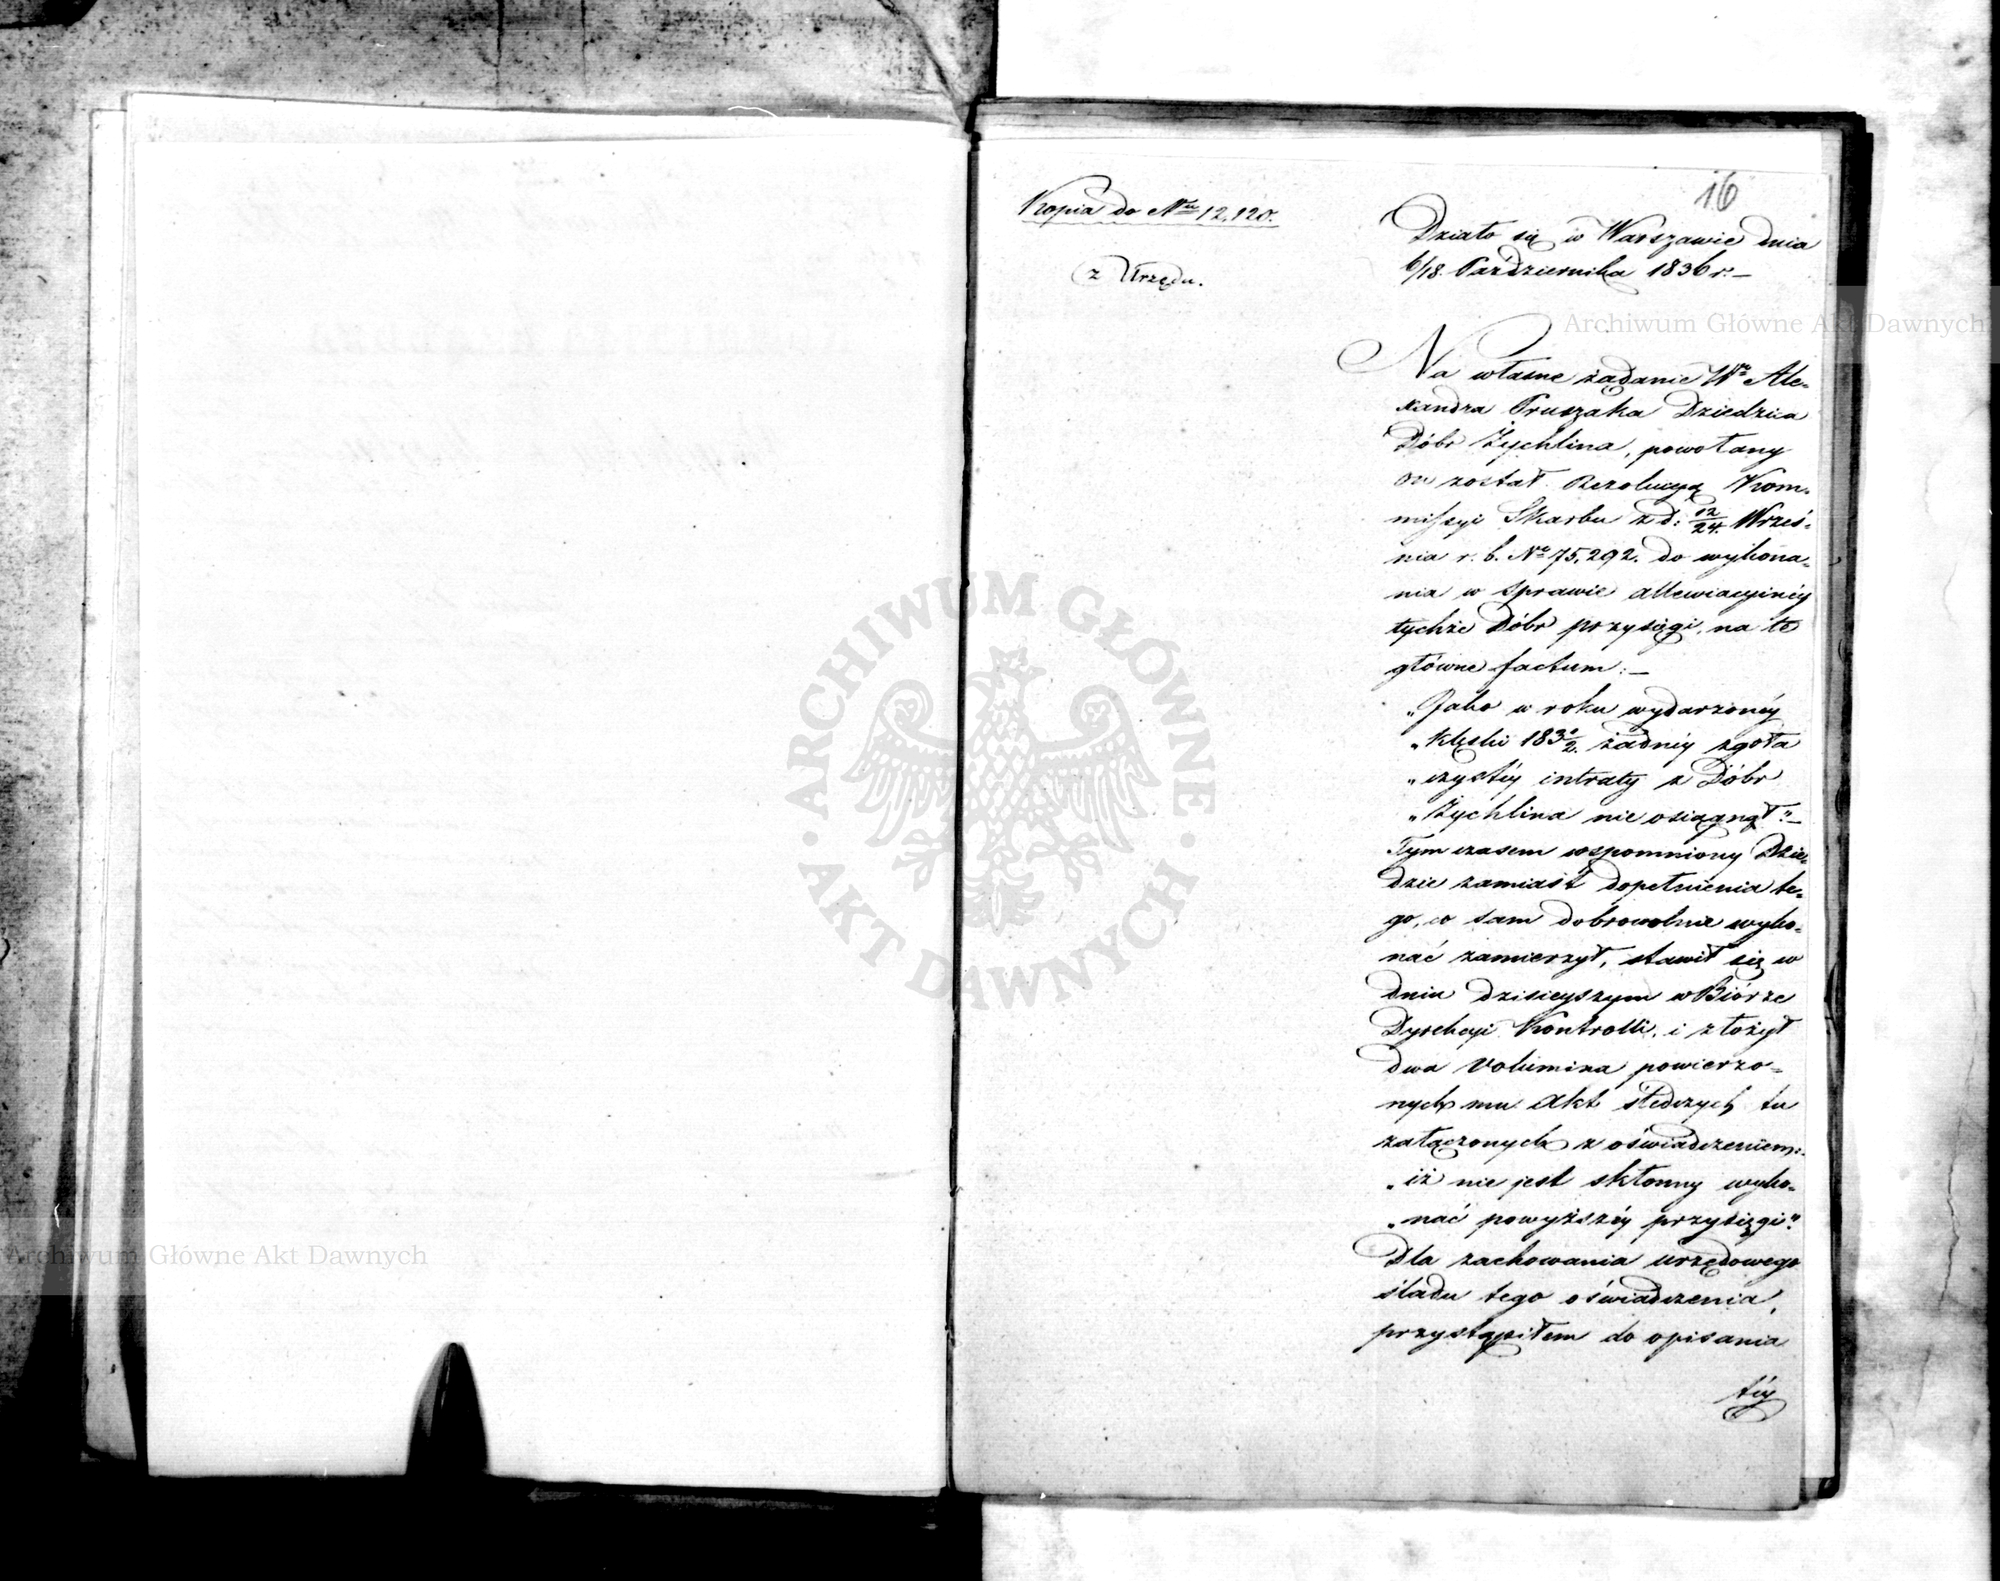 16
Kopia do Nru 12,120.
z Urzędu.
Działo się w Warszawie dnia
6/18. Października 1836 r. —
Na własne żądanie Wgo Ale=
xandra Pruszaka Dziedzica
Dóbr Żychlina, powołany
on został Rezolucyą Kom=
missyi Skarbu z d: 12/24 Wrześ=
nia r. b. No 75,292. do wykona=
nia w sprawie allewiacyinéy
tychże Dóbr przysięgi, na te
główne factum: —
„Jako w roku wydarzonéy
„klęski 183 1/2. żadnéy zgoła
„czystéy intraty z Dóbr
„Żychlina nie osiągnął." —
Tymczasem wspomniony Dzie=
dzic zamiast dopełnienia te=
go, co sam dobrowolnie wyko=
nać zamierzył, stawił się w
dniu dzisieyszym w Biórze
Dyrekcyi Kontrolli, i złożył
dwa Volumina powierzo=
nych mu Akt śledczych tu
załączonych z oświadczeniem:
„iż nie jest skłonny wyko=
„nać powyższéy przysięgi".
Dla zachowania urzędowego
śladu tego oświadczenia,
przystąpiłem do opisania
téy
Archiwum Główne Akt Dawnych
Archiwum Główne Akt Dawnych
ARCHIWUM GŁÓWNE
AKT DAWNYCH